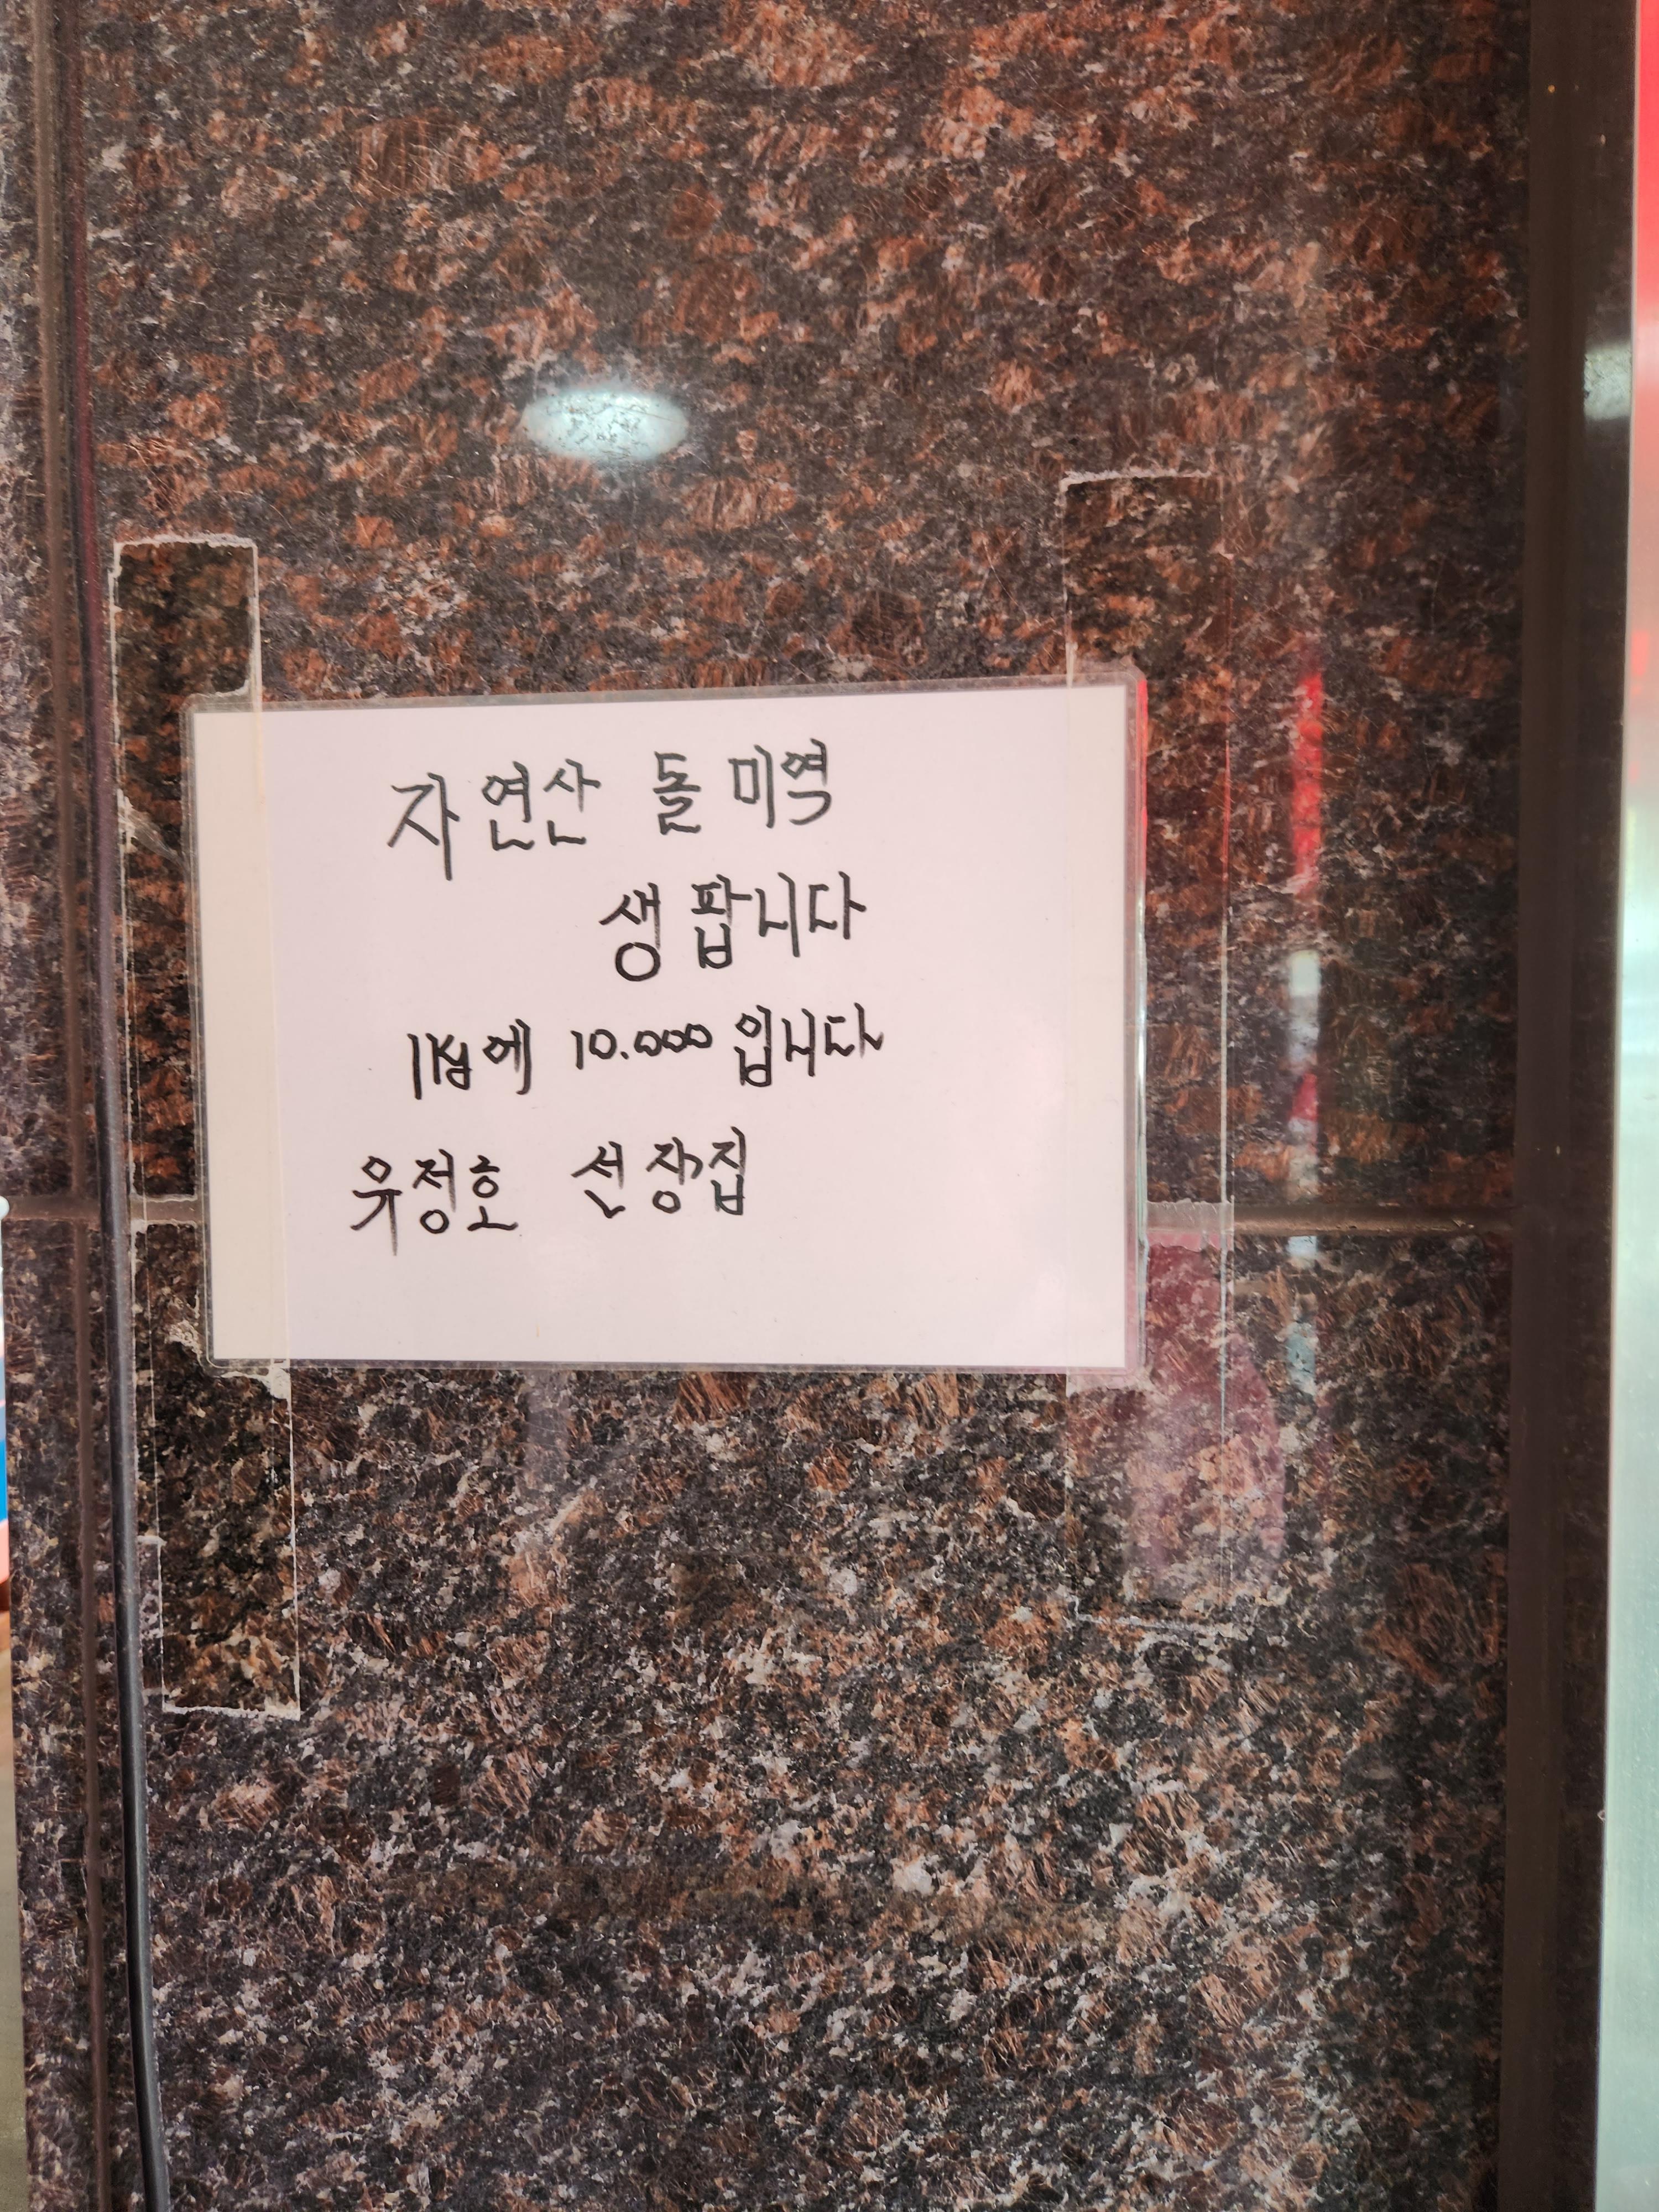 자연산 돌미역
생 팝니다
에 10.000 입니다
유정호 선장집